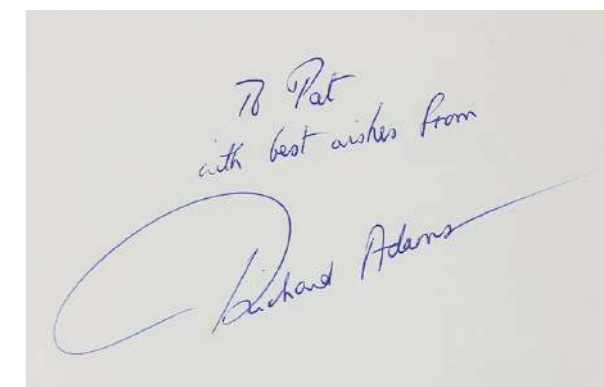 To Pat
with best wishes from
Richard Adams